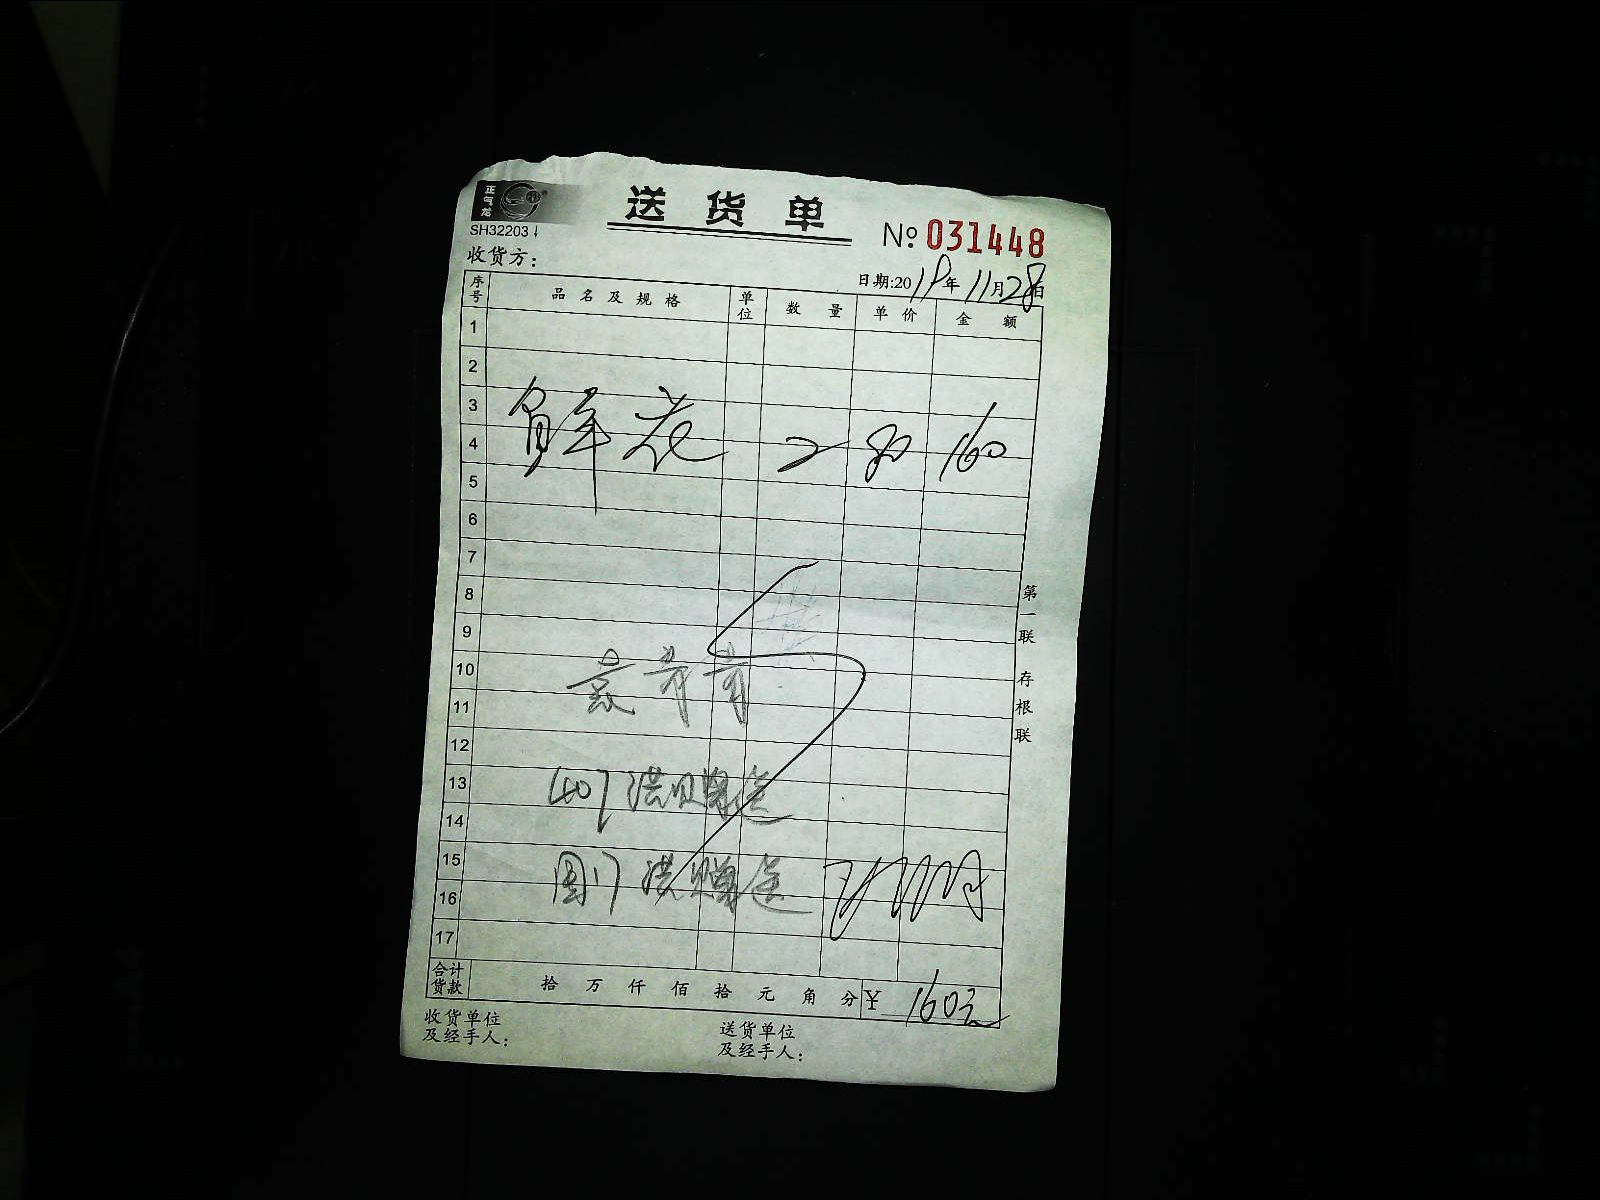 正气龙
送货单
SH32203
№ 031448
收货方：
日期:2019年11月28日
序号 品名及规格 单位 数量 单价 金额
1
2
3
鲜花 2 80 160
4
5
6
7
8
9
10
袁青青
11
12
13
14
15
16
17
第一联 存根联
合计货款 拾 万 仟 佰 拾 元 角 分 ¥ 160元
收货单位及经手人：
送货单位及经手人：